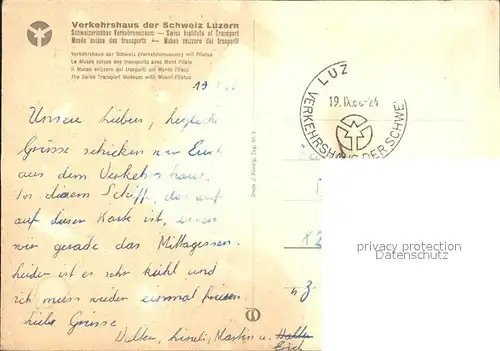 Verkehrshaus der Schweiz Luzern
Schweizerisches Verkehrsmuseum — Swiss Institute of Transport
Musée suisse des transports — Museo svizzero dei trasporti
Verkehrshaus der Schweiz (Verkehrsmuseum) mit Pilatus
Le Musée suisse des transports avec Mont Pilate
Il Museo svizzero dei trasporti con Monte Pilato
The Swiss Transport Museum with Mount Pilatus
19
Unsere Lieben, herzliche
Grüsse schicken wir Euch
aus dem Verkehrshaus.
In diesem Schiff, das auf
auf dieser Karte ist, essen
wir gerade das Mittagessen.
Leider ist es sehr kühl und
ich muss wieder einmal frieren.
Liebe Grüsse
Walter, Liseli, Martin u. Walter
Erich
LUZ
19.IX.66-24
VERKEHRSHAUS DER SCHWEI
privacy protection
Datenschutz